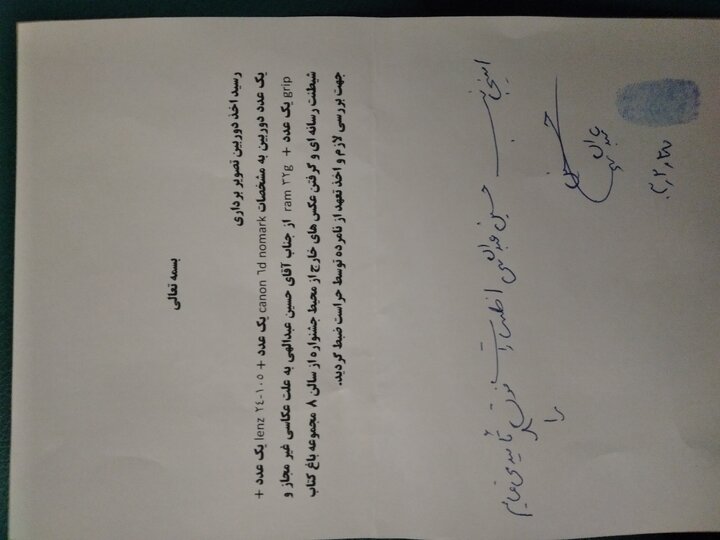 بسمه تعالی
رسید اخذ دوربین تصویر برداری
یک عدد دوربین به مشخصات canon 6d nomark یک عدد + lenz ۲٤-۱۰٥ یک عدد +
grip یک عدد + ram ۳۲g از جناب آقای حسین عبدالهی به علت عکاسی غیر مجاز و
شیطنت رسانه ای و گرفتن عکس های خارج از محیط جشنواره از سالن ۸ مجموعه باغ کتاب
جهت بررسی لازم و اخذ تعهد از نامرده توسط حراست ضبط گردید.
اینجانب حسین عبدالهی اظهارات فوق را تایید می نمایم
حسین
عبدالهی